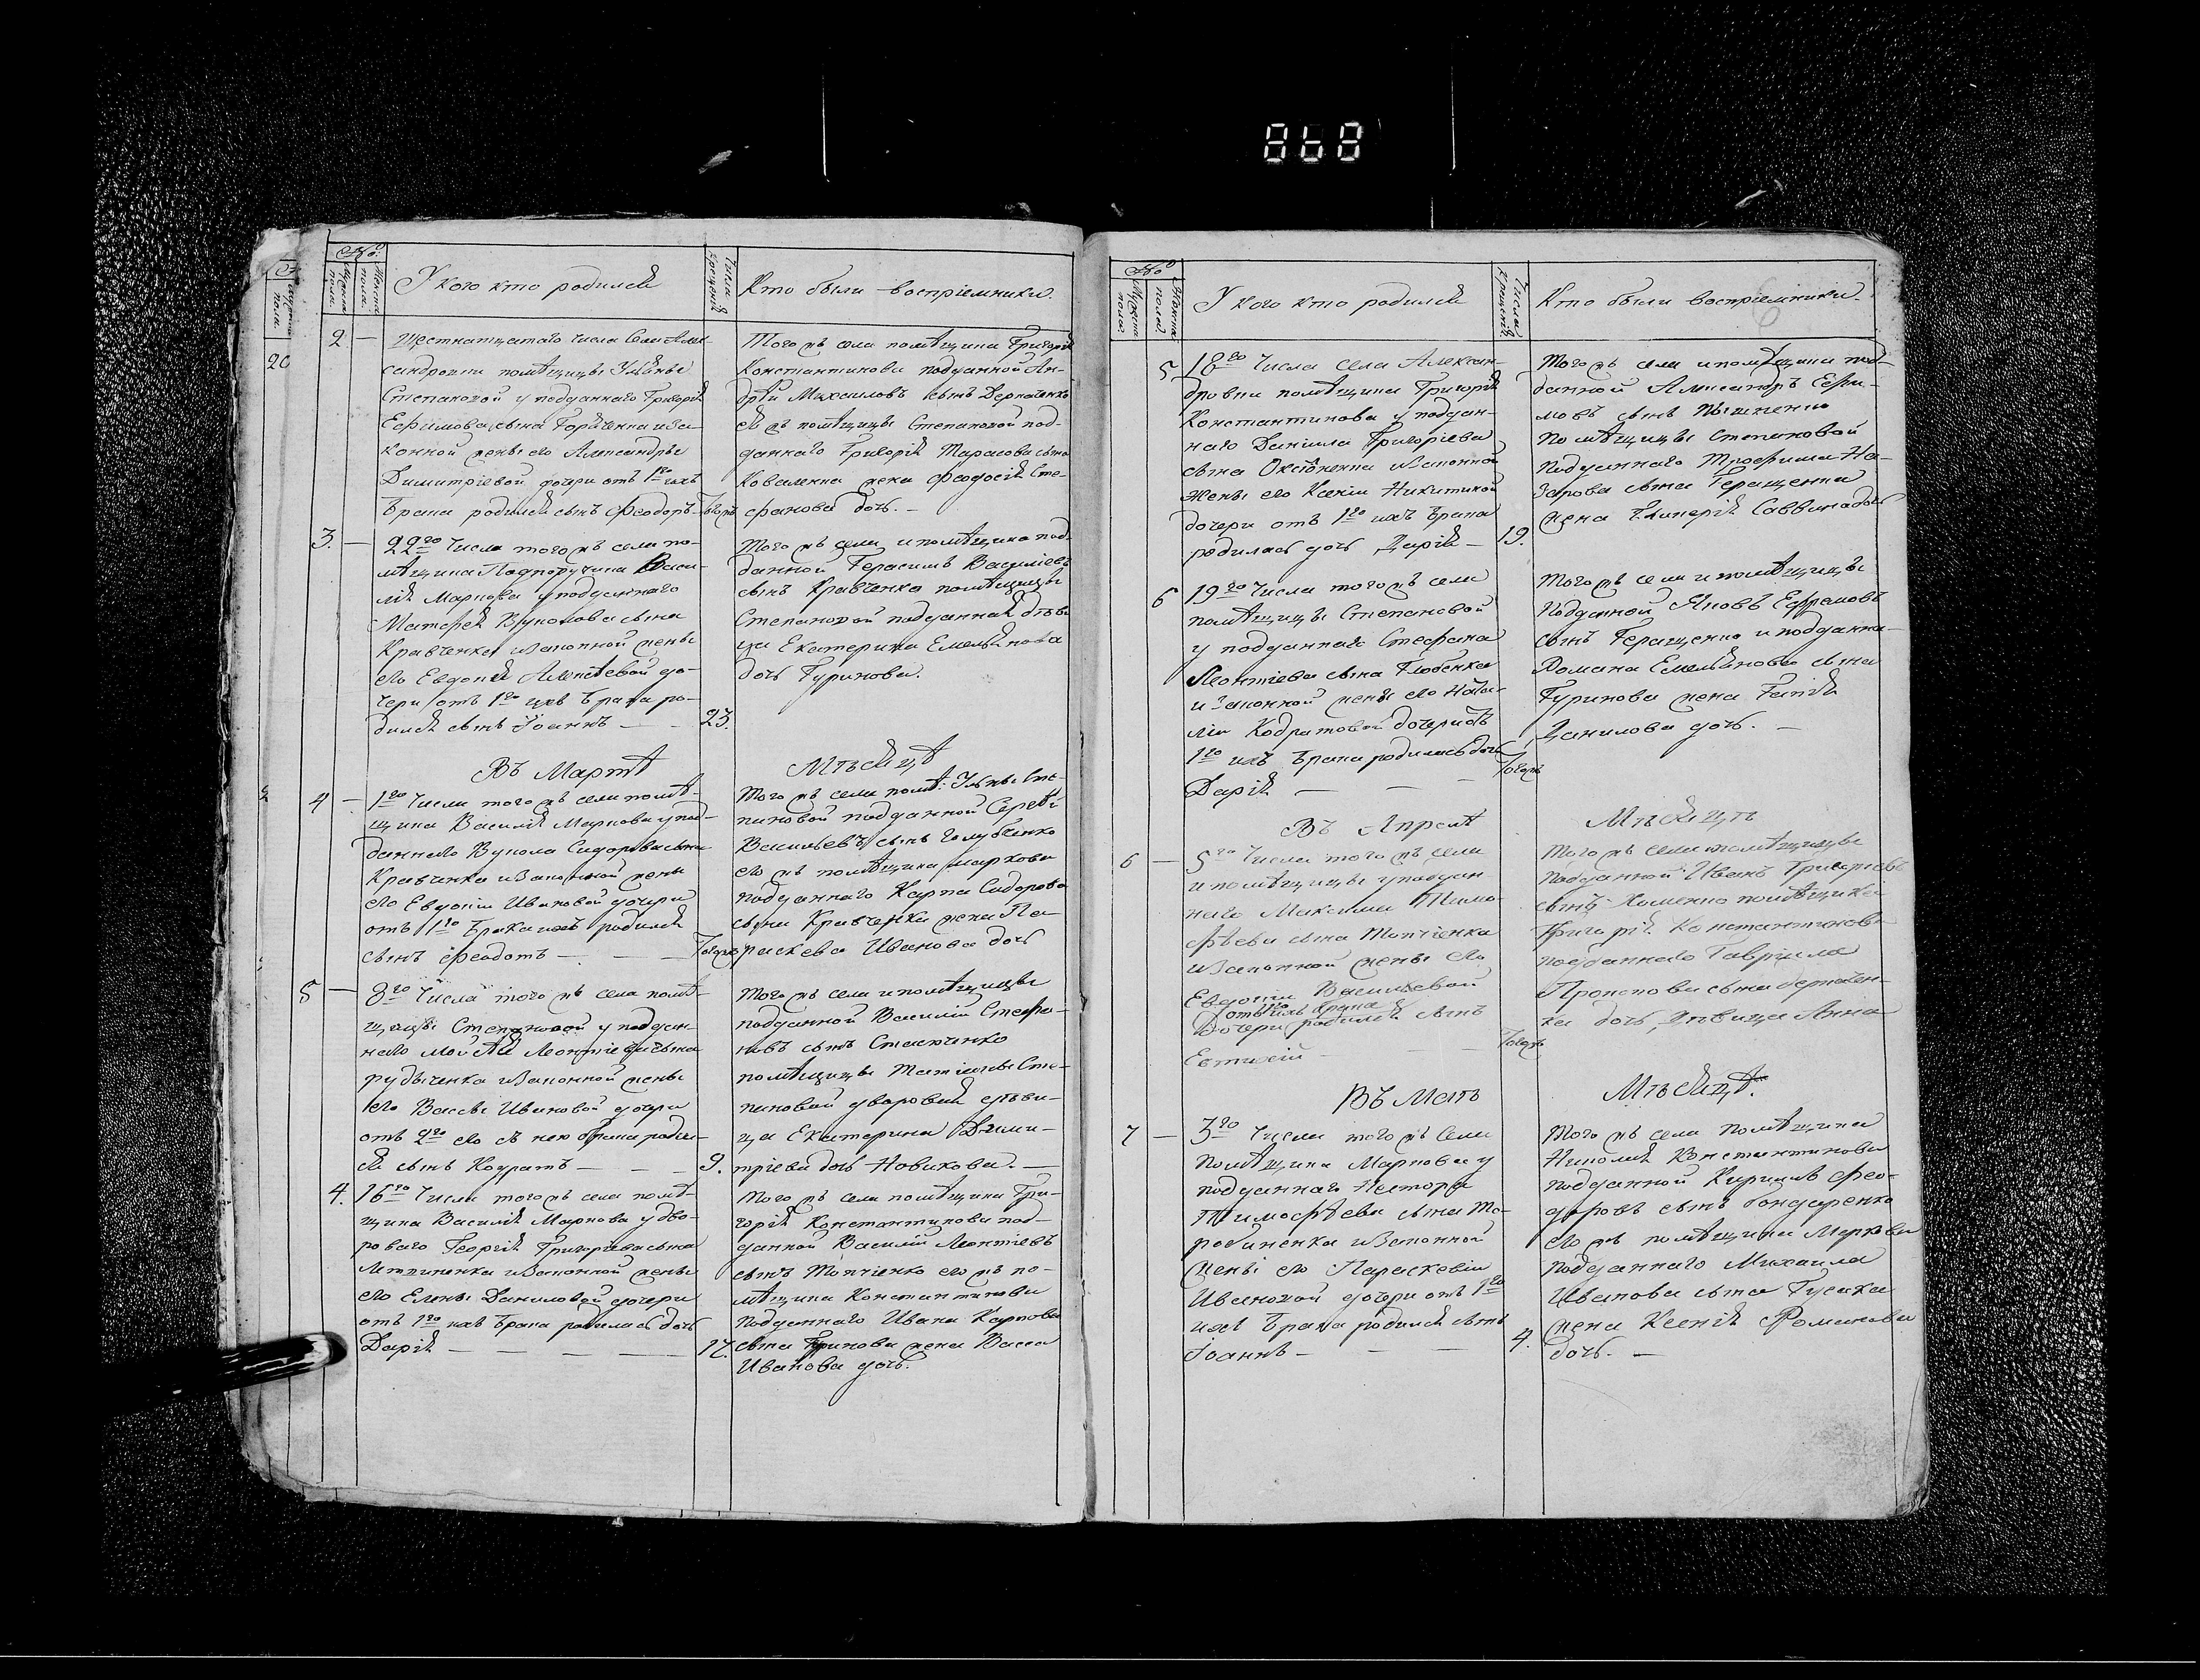 868
№
Мужеска пола
Женска пола
У кого кто родился
Числа крещенія
Кто были воспріемники.
20
2 — Шестнатцатаго числа села Алек-
сандровки помѣщицы Ульяны
Степановой у подданнаго Григорія
Ефимова сына Горбченка и за-
конной жены его Александры
Димитріевой дочери отъ 1го ихъ
брака родился сынъ Феодоръ — Тогожъ
Того жъ села помѣщика Григорія
Константинова подданной Ан-
дрей Михаиловъ сынъ Деркаченко
ея жъ помѣщицы Степановой под-
даннаго Григорія Тарасова сына
Коваленка жена Феодосія Сте-
фанова дочь. —
3. — 22го числа того жъ села по-
мѣщика Подпоручика Васи-
лія Маркова у подданнаго
Матфея Вуколова сына
Кравченка и законной жены
его Евдокіи Алексѣевой до-
чери отъ 1го ихъ брака ро-
дился сынъ Іоаннъ — 23.
Того жъ села и помѣщика под-
данной Герасимъ Василіевъ
сынъ Кравченко помѣщицы
Степановой подданная дѣви-
ца Екатерина Емельянова
дочь Гуринова.
Въ Мартѣ Мѣсяцѣ
4 — 1го числа того жъ села помѣ-
щика Василія Маркова у под-
даннаго Вукола Сидорова сына
Кравченка и законной жены
его Евдокіи Ивановой дочери
отъ 1го брака ихъ родился
сынъ Феодотъ — Тогожъ
Того жъ села помѣ: Ульяны Сте-
пановой подданной Сергѣй
Васильевъ сынъ Голубченко
его жъ помѣщика Маркова
подданнаго Карпа Сидорова
сына Кравченка жена Па-
раскева Иванова дочь
5 — 8го числа того жъ села помѣ-
щицы Степановой у поддан-
наго Моисѣя Леонтіева сына
Рудыченка и законной жены
его Вассы Ивановой дочери
отъ 2го его съ нею брака родил-
ся сынъ Кодратъ — 9.
Того жъ села и помѣщицы
подданной Василій Стефа-
новъ сынъ
помѣщицы Сте-
пановой дворовая дѣви-
ца Екатерина Дими-
тріева дочь Новикова. —
4. 16го числа того жъ села помѣ-
щика Василія Маркова у дво-
роваго Георгія Григоріева сына
и законной жены
его Елены Даниловой дочери
отъ 1го ихъ брака родилась дочь
Дарія — 17.
Того жъ села помѣщика Гри-
горія Константинова под-
данной Василій Леонтіевъ
сынъ Топчіенко его жъ по-
мѣщика Константинова
подданнаго Ивана Карпова
сына жена Васса
Иванова дочь.
№
Мужеска пола
Женска пола
У кого кто родился
Числа крещенія
Кто были воспріемники.
6
5 18го числа села Алексан-
дровки помѣщика Григорія
Константинова у поддан-
наго Даніила Григоріева
сына и законной
жены его Ксеніи Никитиной
дочери отъ 1го ихъ брака
родилась дочь Дарія — 19.
Того жъ села и помѣщика под-
данной Александръ Ефи-
мовъ сынъ
помѣщицы Степановой
подданнаго Трофима На-
зарова сына Геращенка
жена Гликерія Саввина дочь
6 19го числа того жъ села
помѣщицы Степановой
у подданнаго Стефана
Леонтіева сына
и законной жены его Ната-
ліи Кодратовой дочери отъ
1го ихъ брака родилась дочь
Дарія — Тогожъ
Того жъ села и помѣщицы
подданной Яковъ Ефремовъ
сынъ Геращенко и подданна-
Романа Емельянова сына
Гуринова жена
Данилова дочь. —
Въ Апрелѣ Мѣсяцѣ
6 — 5го числа того жъ села
и помѣщицы у поддан
наго Максима Тимо-
фѣева сына Топчіенка
и законной жены его
Евдокіи Васильевой
отъ 1го ихъ брака
дочери родился сынъ
Евтихій — Тогожъ
Того жъ села помѣщицы
подданной Иванъ Григорьевъ
сынъ Хоменко помѣщика
Григорія Константинова
подданнаго Гавріила
Прокопова сына Деркачен-
ка дочь дѣвица Анна
Въ Маѣ Мѣсяцѣ.
7 — 3го числа того жъ села
помѣщика Маркова у
подданнаго Нестора
Тимофѣева сына
и законной
жены его Параскевіи
Ивановой дочери отъ 1го
ихъ брака родился сынъ
Іоаннъ — 4.
Того жъ села помѣщика
Николая Константинова
подданной Кирилъ Фео-
доровъ сынъ Бондаренко
его жъ помѣщика Маркова
подданнаго Михаила
Иванова сына Гусака
жена Ксенія Романова
дочь. —